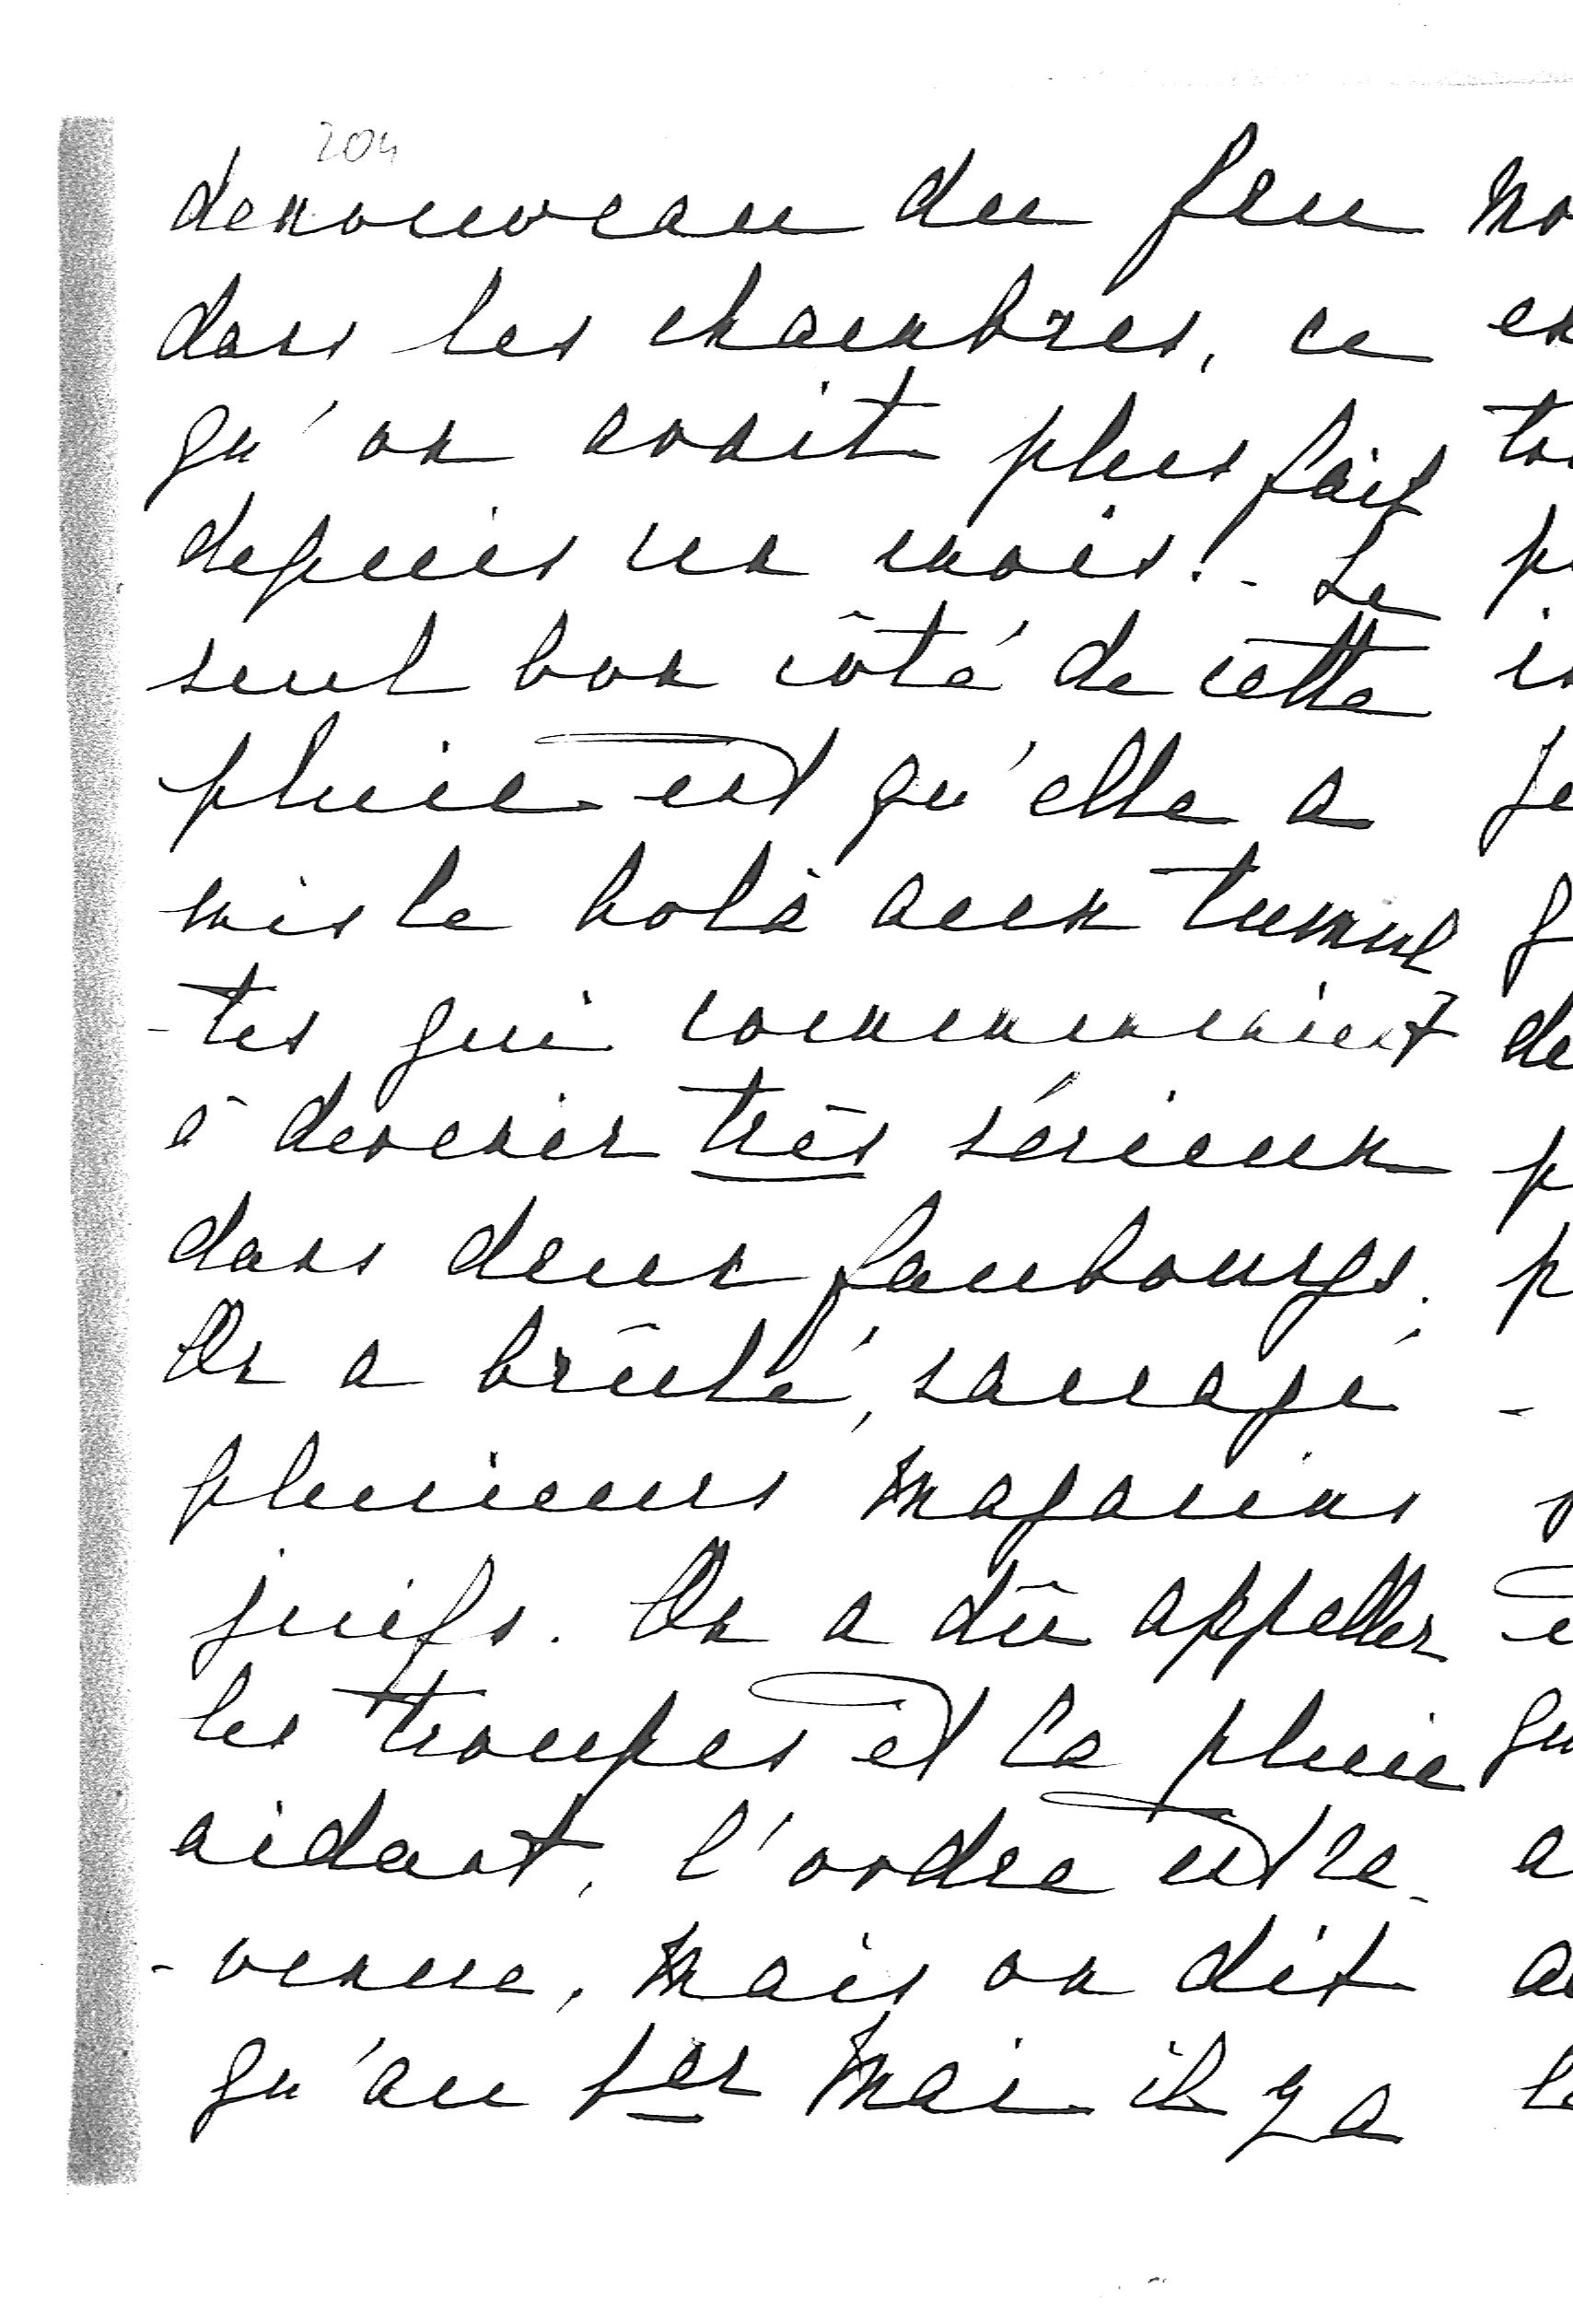 204
denouveau du feu
dans les chambres, ce
qu'on avait plus fait
depuis un mois. - Le
seul bon côté de cette
pluie est qu'elle a
mis le holà aux tumul
-tes qui commencaient
à devenir très sérieux
dans deux faubourgs.
On a brûlé, saccagé
plusieurs magasins
juifs. On a dû appeller
les troupes et la pluie
aidant, l'ordre est re-
-venue, mais on dit
qu'au 1er Mai il y a